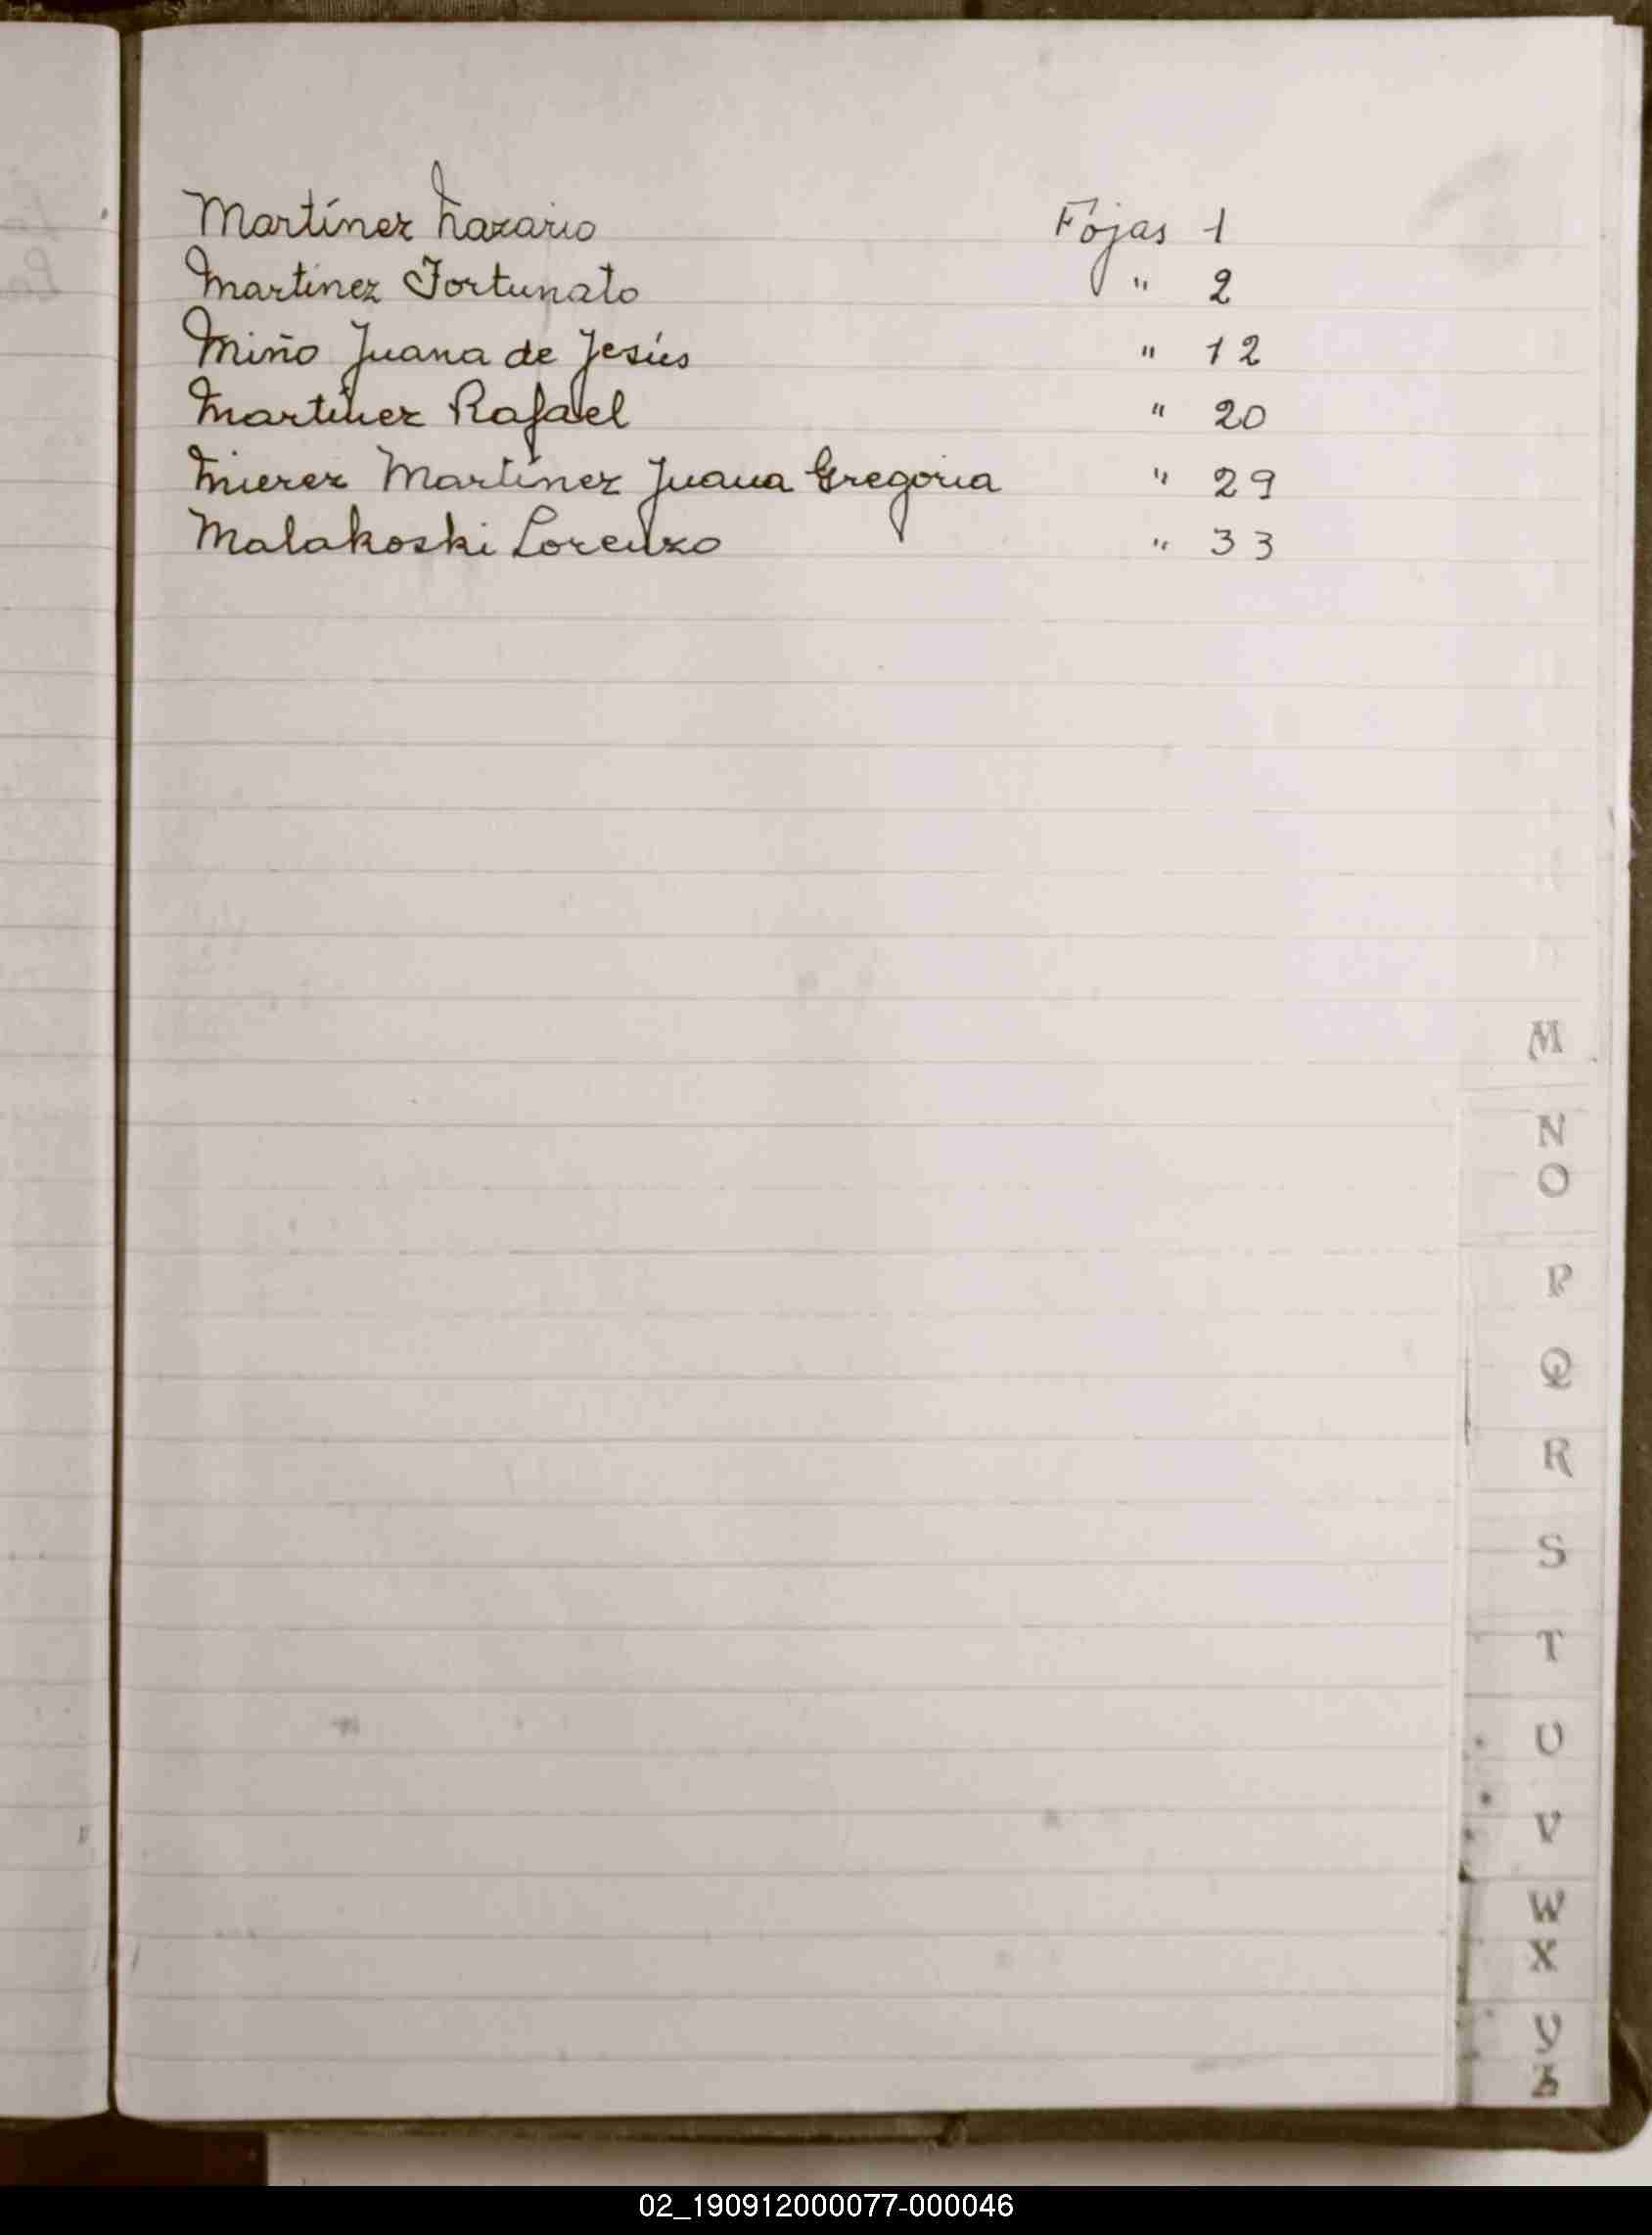 Martínez Nazario Fojas 1
Martínez Fortunato " 2
Miño Juana de Jesús " 12
Martínez Rafael " 20
Mierez Martínez Juana Gregoria " 29
Malakoski Lorenzo " 33
M
N
O
P
Q
R
S
T
U
V
W
X
Y
Z
02_190912000077-000046